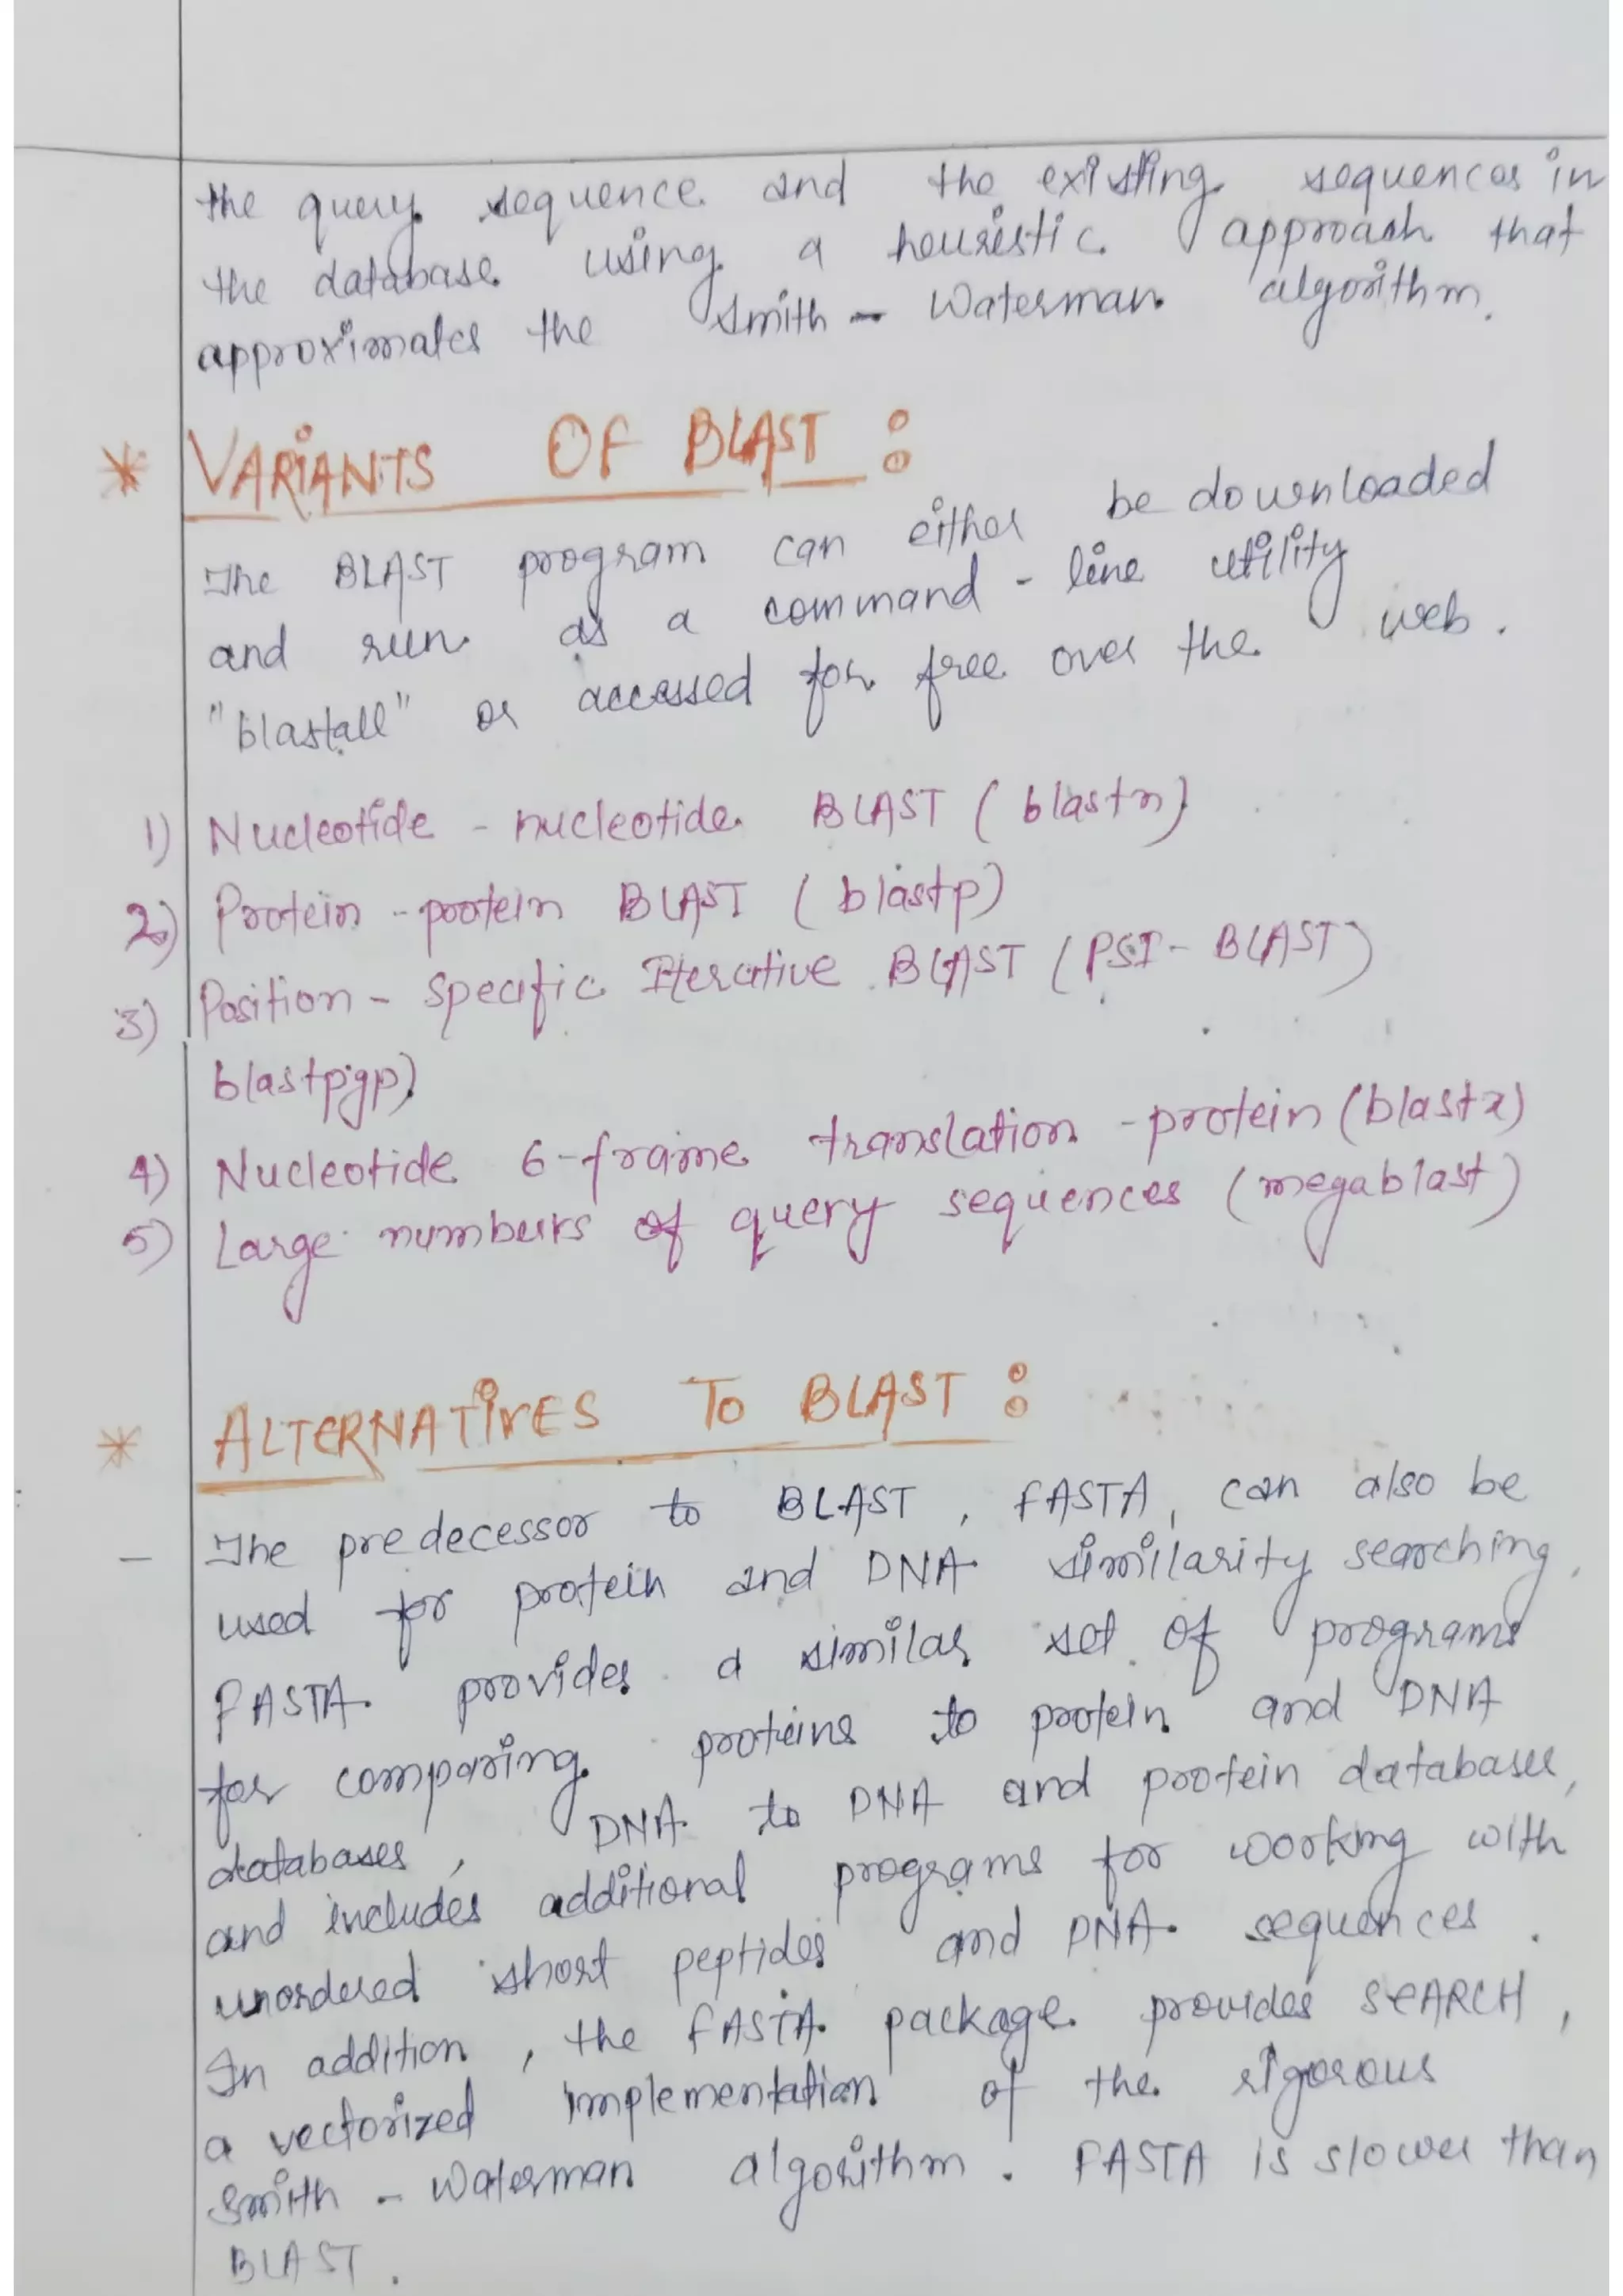 the query sequence and the existing sequences in
the database using a heuristic approach that
approximates the Smith - Waterman algorithm.
* VARIANTS OF BLAST :
The BLAST program can either be downloaded
and run as a command - line utility
"blastall" or accessed for free over the web.
1) Nucleotide - nucleotide BLAST (blastn)
2) Protein - protein BLAST (blastp)
3) Position - specific Iterative BLAST (PSI - BLAST)
blastpgp)
4) Nucleotide 6-frame translation - protein (blastx)
5) Large numbers of query sequences (megablast)
* ALTERNATIVES TO BLAST :
- The predecessor to BLAST, FASTA, can also be
used for protein and DNA similarity searching,
FASTA provides a similar set of programs
for comparing proteins to protein and DNA
databases, DNA to DNA and protein databases,
and includes additional programs for working with
unordered short peptides and DNA sequences.
In addition, the FASTA package provides SEARCH,
a vectorized implementation of the rigorous
Smith - Waterman algorithm. FASTA is slower than
BLAST.